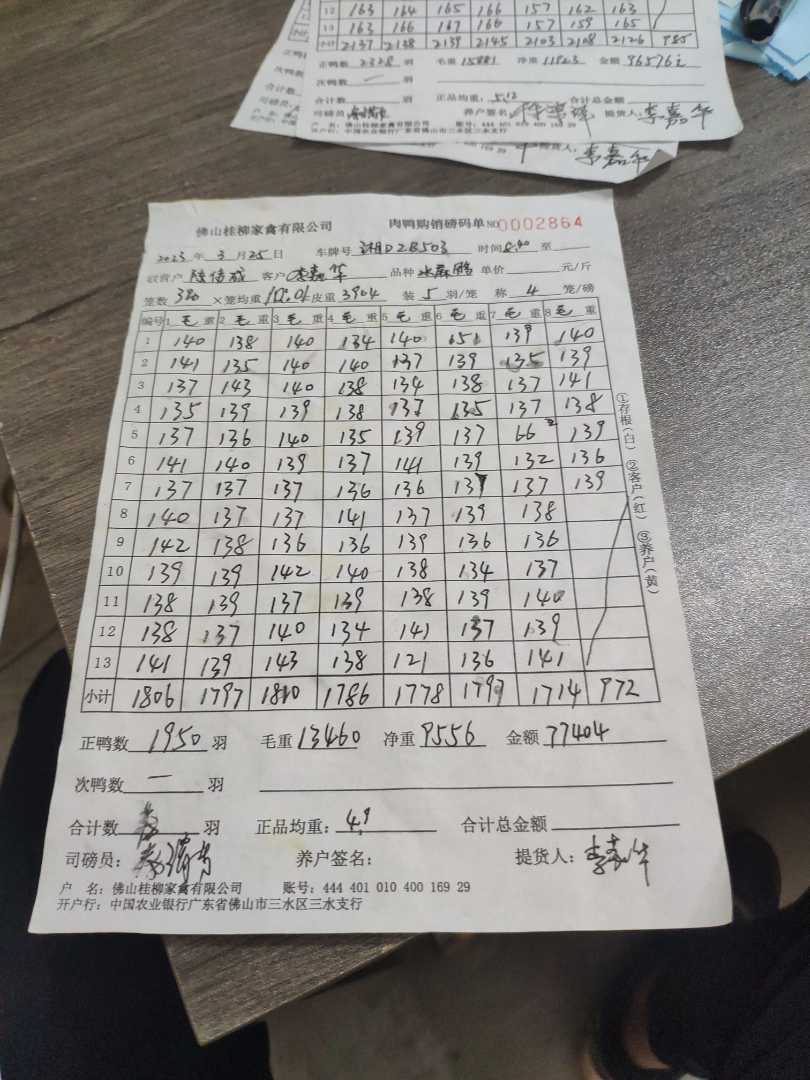 12 163 164 165 166 157 162 163
13 163 166 167 166 157 159 165
小计 2137 2138 2139 2145 2103 2108 2126 985
正鸭数 2328 羽 毛重 15881 净重 11923 金额 96576元
次鸭数 一 羽
合计数 羽 正品均重: 5.12 合计总金额
司磅员 养户签名 提货人: 李嘉华
户 名: 佛山桂柳家禽有限公司 账号: 444 401 010 400 169 29
开户行: 中国农业银行广东省佛山市三水区三水支行
提货人: 李嘉华
佛山桂柳家禽有限公司 肉鸭购销磅码单 NO 0002864
2023 年 3 月 25 日 车牌号 湘D2B503 时间 8:40 至
收营户 客户 李嘉华 品种 单价 元/斤
笼数 380 ×笼均重 10.01 皮重 3904 装 5 羽/笼 称 4 笼/磅
编号 1 毛 重 2 毛 重 3 毛 重 4 毛 重 5 毛 重 6 毛 重 7 毛 重 8 毛 重
1 140 138 140 134 140 151 139 140
2 141 135 140 140 137 139 135 139
3 137 143 140 138 134 138 137 141
4 135 139 139 138 137 135 137 138
5 137 136 140 135 139 137 66 2 139
6 141 140 139 137 141 139 132 136
7 137 137 137 136 136 137 137 139
8 140 137 137 141 137 139 138
9 142 138 136 136 139 136 136
10 139 139 142 140 138 134 137
11 138 139 137 139 138 139 140
12 138 137 140 134 141 137 139
13 141 139 143 138 121 136 141
小计 1806 1797 1810 1786 1778 1797 1714 972
①存根(白) ②客户(红) ③养户(黄)
正鸭数 1950 羽 毛重 13460 净重 9556 金额 77404
次鸭数 一 羽
合计数 羽 正品均重: 4.9 合计总金额
司磅员: 养户签名: 提货人: 李嘉华
户 名: 佛山桂柳家禽有限公司 账号: 444 401 010 400 169 29
开户行: 中国农业银行广东省佛山市三水区三水支行